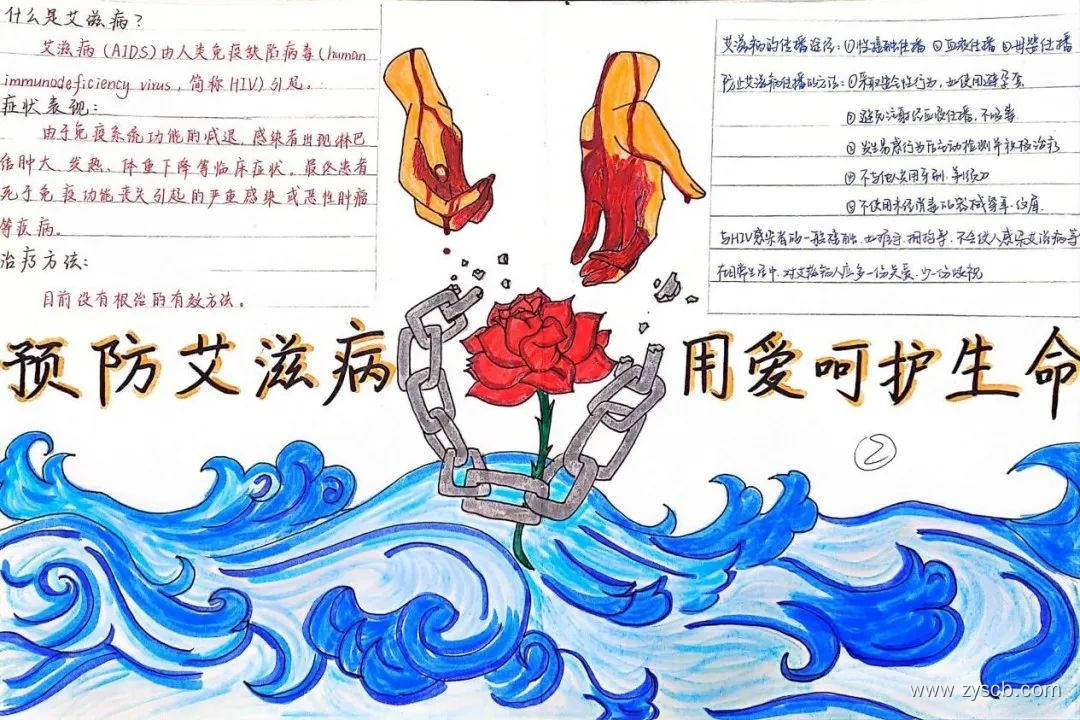 什么是艾滋病？
艾滋病（AIDS）由人类免疫缺陷病毒（human
immunodeficiency virus，简称HIV）引起。
症状表现：
由于免疫系统功能的减退，感染者出现淋巴
结肿大、发热、体重下降等临床症状。最终患者
死于免疫功能丧失引起的严重感染或恶性肿瘤
等疾病。
治疗方法：
目前没有根治的有效方法。
艾滋病的传播途径：①性接触传播 ②血液传播 ③母婴传播
防止艾滋病传播的方法：①采取安全性行为，使用避孕套
②避免注射经血液传播，不吸毒
③发生易感行为后主动检测并积极治疗
④不与他人共用牙刷、剃须刀
⑤不使用未经消毒的器械穿耳、纹眉
与HIV感染者的一般接触，握手、拥抱等，不会使人感染艾滋病等
在日常生活中，对艾滋病人应多一份关爱，少一份歧视
预防艾滋病 用爱呵护生命
2
www.zyscb.com